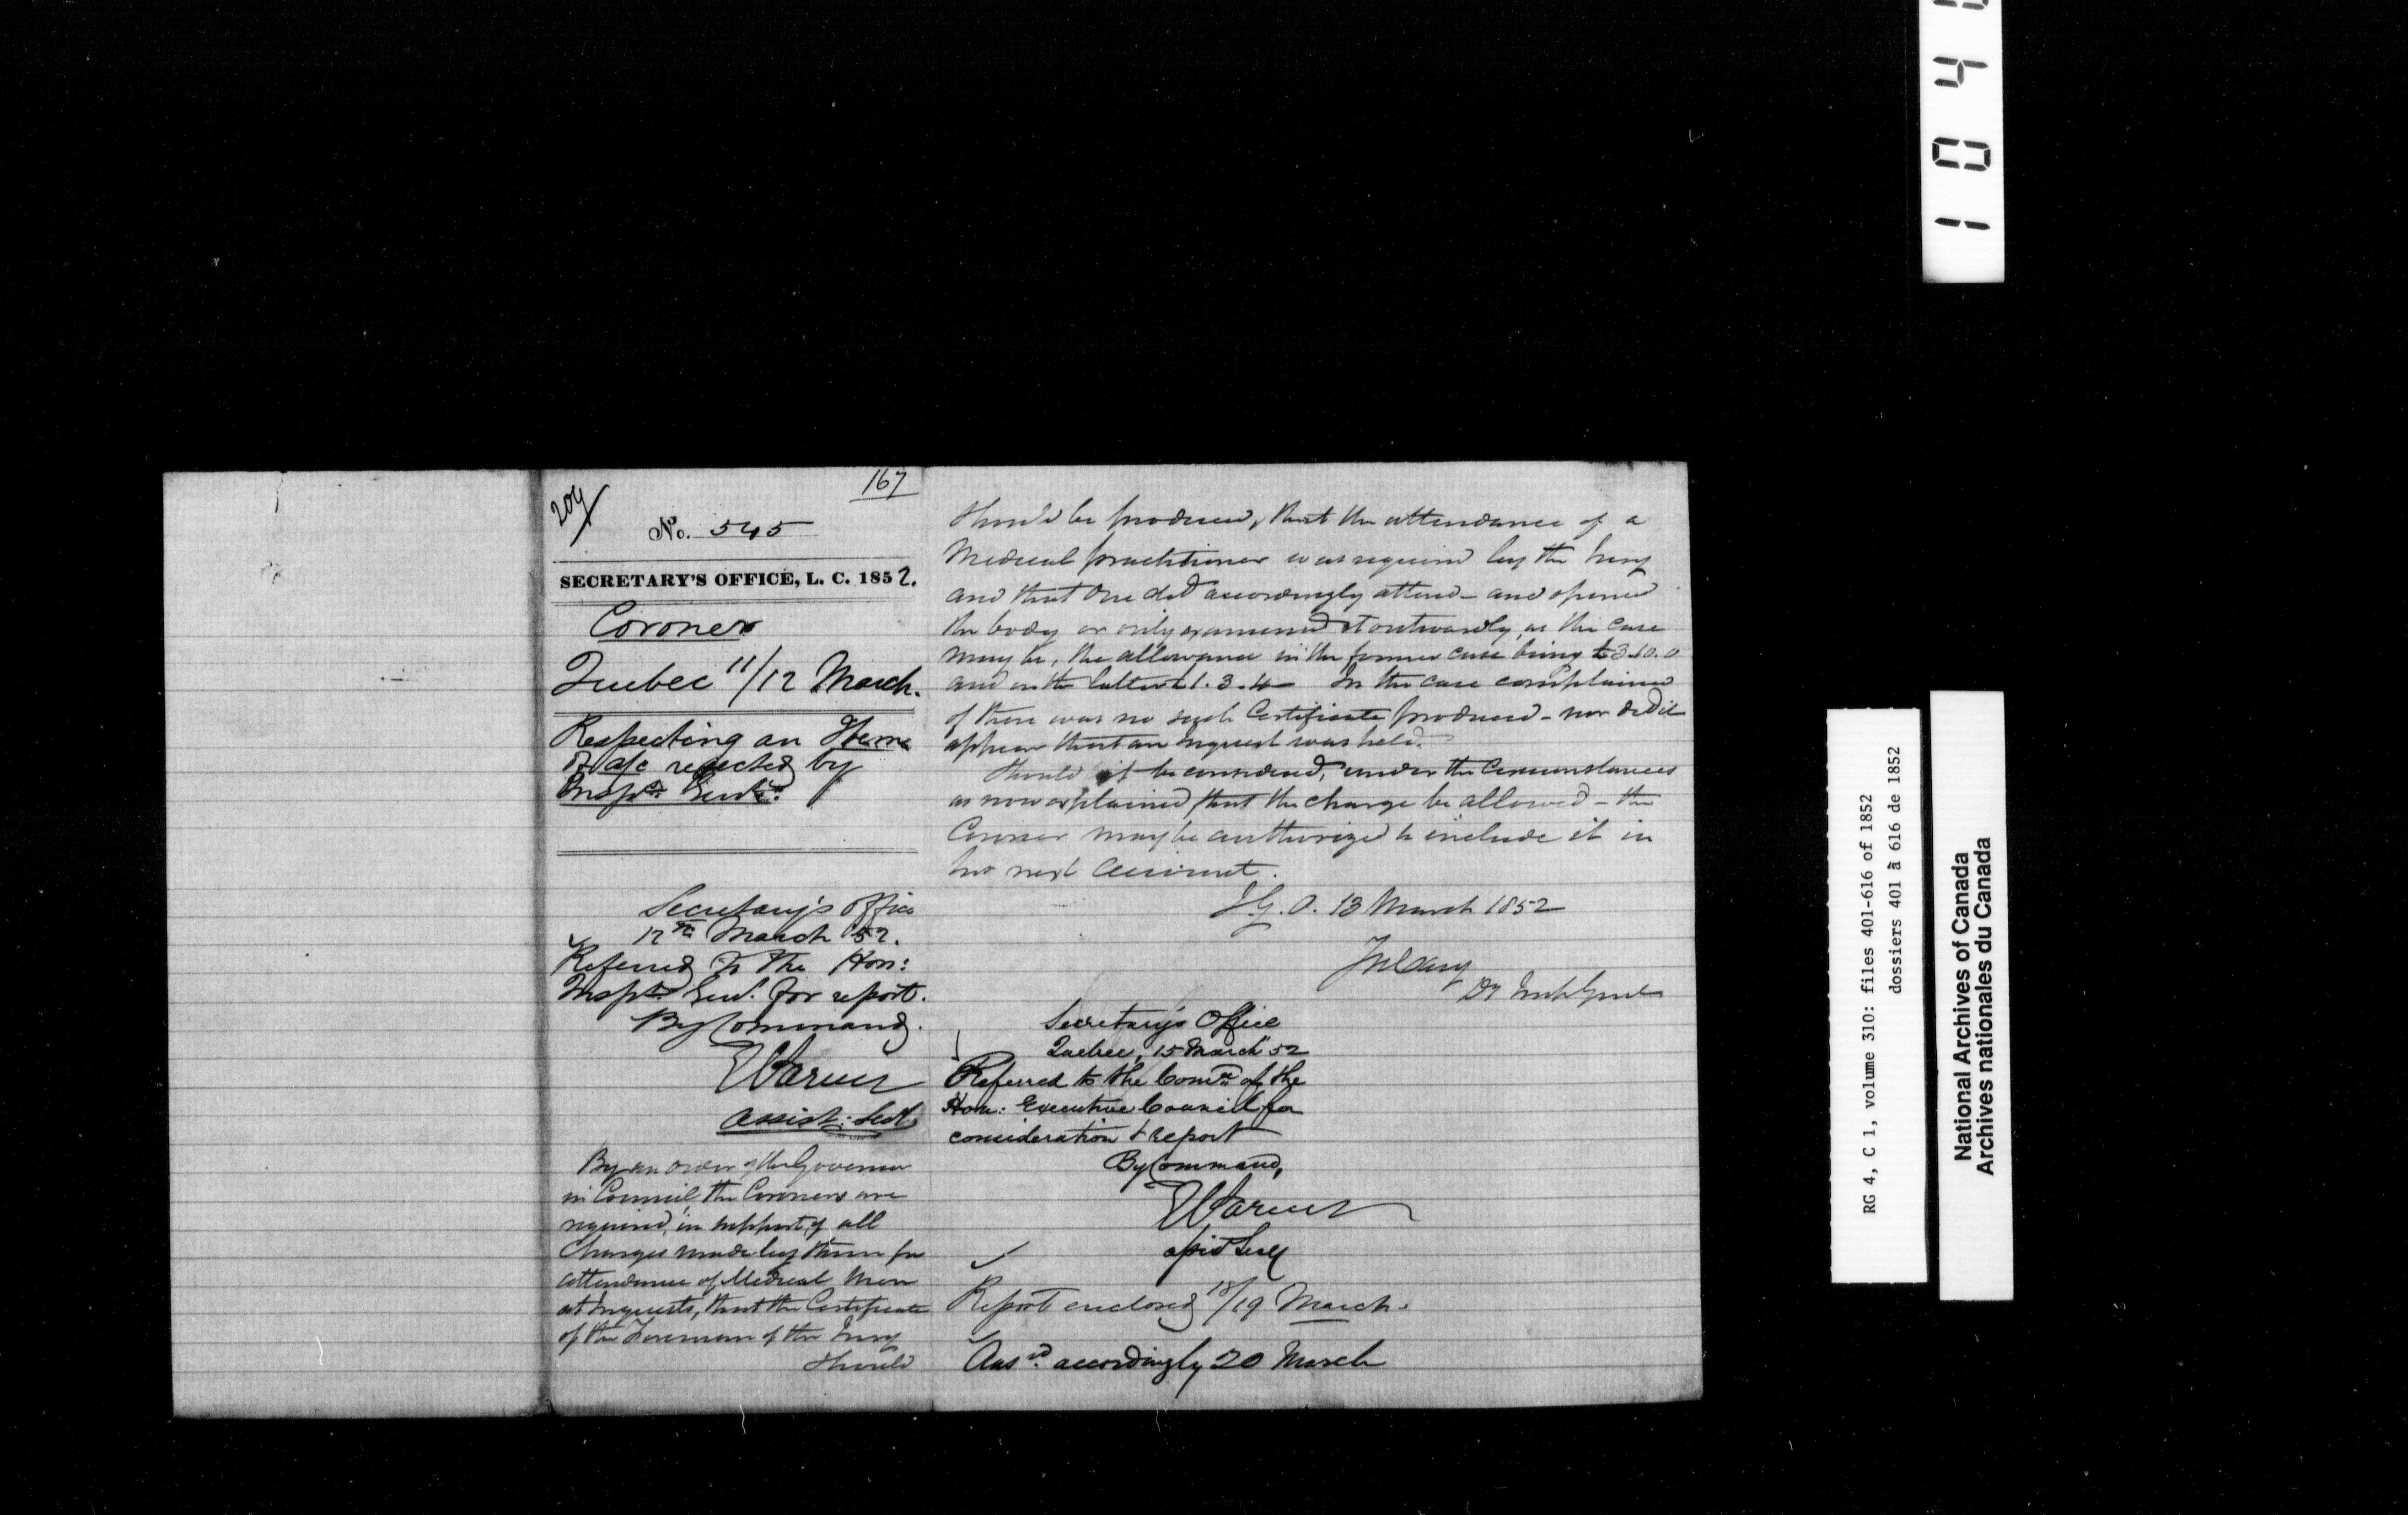 167
209
No. 545
SECRETARY'S OFFICE, L. C. 1852.
Coroner
Quebec 11/12 March.
Respecting an Item
of a/c rejected by
Inspr. Genl.
Secretary's Office
12th March '52.
Referred to the Hon:
Inspr. Genl. for report.
By Command.
Assist. Secy
By an order of the Governor
in Council, the Coroners are
required, in support of all
Charges made by them for
attendance of Medical Men
at Inquests, that the Certificate
of the Foreman of the Jury
should
should be produced, that the attendance of a
Medical practitioner was required by the Jury
and that One did accordingly attend - and opened
the body or only examined it outwardly, as the case
may be, the allowance in the former case being £3.10.0
and in the latter £1.3.4 - In the case complained
of there was no such Certificate produced - nor did it
appear that an Inquest was held.
Should it be considered, under the Circumstances
as now explained, that the charge be allowed - the
Coroner may be authorized to include it in
his next Account.
I.G.O. 13 March 1852
Jos Cary
Dy Insp Genl
Secretary's Office
Quebec, 15 March '52
Referred to the Comee. of the
Hon: Executive Council for
consideration & report
By Command,
Assist Secy
Report enclosed 18/19 March.
Ansd. accordingly 20 March
1 0 4
RG 4, C 1, volume 310: files 401-616 of 1852
dossiers 401 à 616 de 1852
National Archives of Canada
Archives nationales du Canada